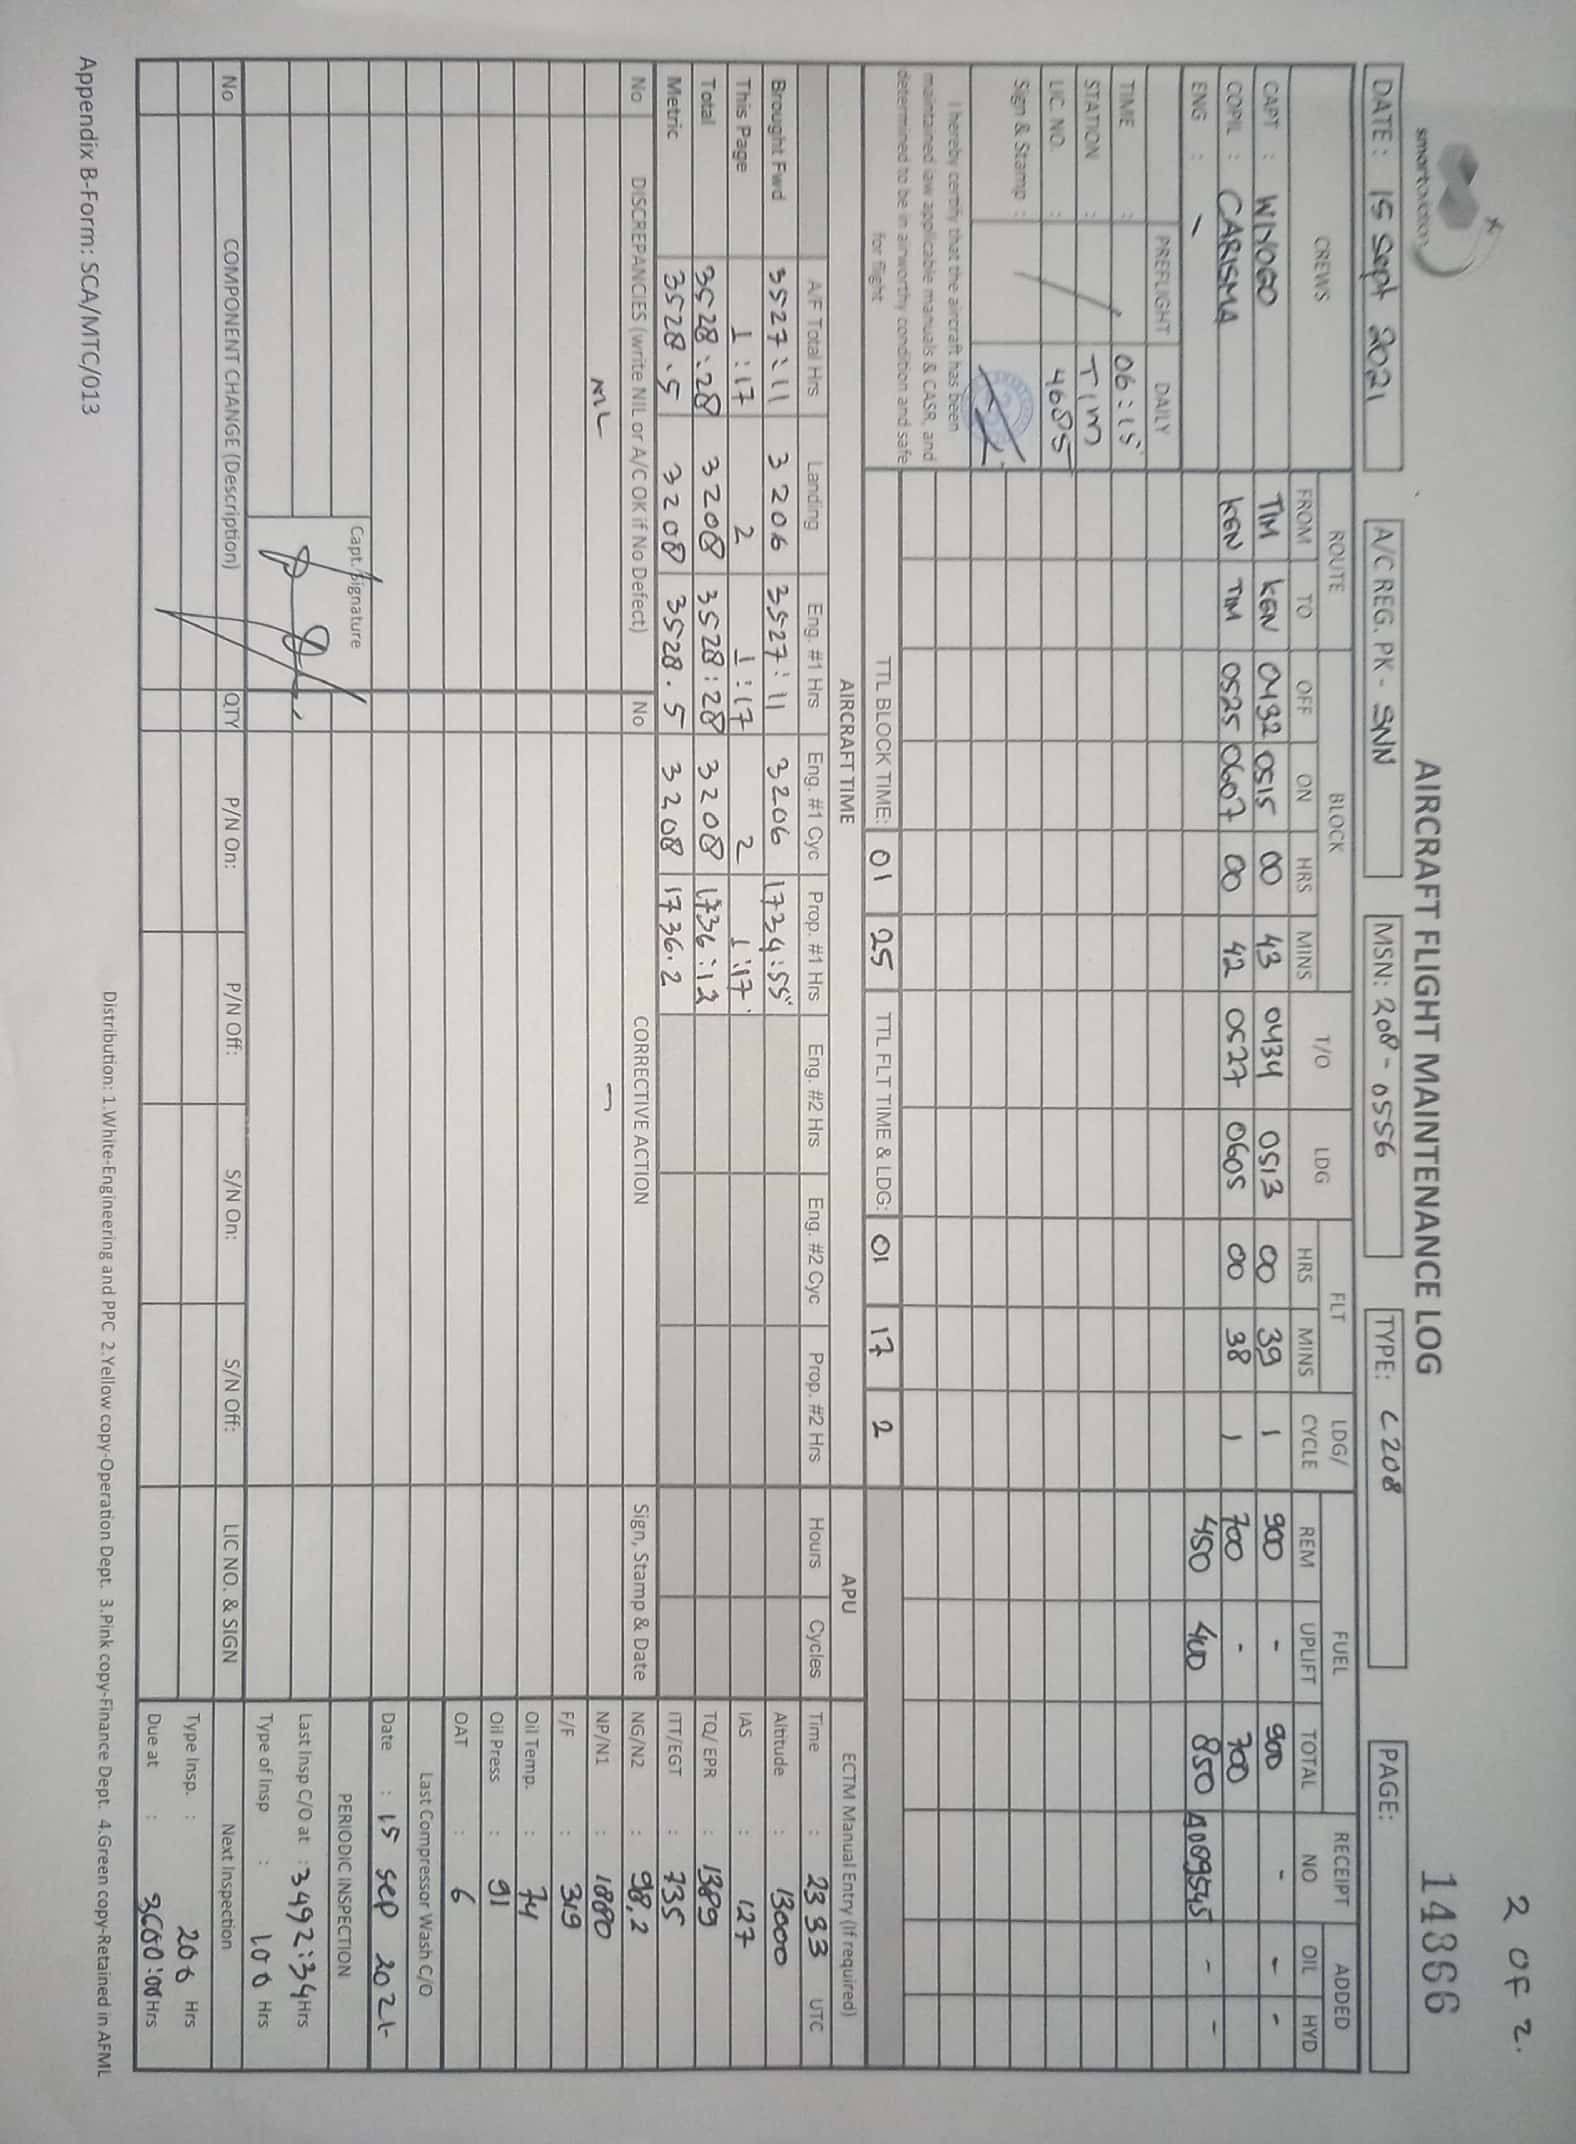 2 OF 2.
smartaviation
AIRCRAFT FLIGHT MAINTENANCE LOG
14866
DATE : 15 Sept 2021 A/C REG. PK - SNN MSN: 208 - 0556 TYPE: C208 PAGE:
CREWS ROUTE BLOCK T/O LDG FLT LDG/ CYCLE FUEL RECEIPT NO ADDED
FROM TO OFF ON HRS MINS HRS MINS REM UPLIFT TOTAL OIL HYD
CAPT : WIYOGO TIM KEN 0432 0515 00 43 0434 0513 00 39 1 900 - 900 - - -
COPIL : CARISMA KEN TIM 0525 0607 00 42 0527 0605 00 38 1 700 - 700
ENG : - 450 400 850 A089545 - -
PREFLIGHT DAILY
TIME : 06:15
STATION : TIM
LIC. NO. : 4685
Sign & Stamp :
I hereby certify that the aircraft has been
maintained iaw applicable manuals & CASR, and
determined to be in airworthy condition and safe
for flight
TTL BLOCK TIME: 01 25 TTL FLT TIME & LDG: 01 17 2
AIRCRAFT TIME APU ECTM Manual Entry (If required)
A/F Total Hrs Landing Eng. #1 Hrs Eng. #1 Cyc Prop. #1 Hrs Eng. #2 Hrs Eng. #2 Cyc Prop. #2 Hrs Hours Cycles Time : 2333 UTC
Brought Fwd 3527:11 3206 3527:11 3206 1734:55 Altitude : 13000
This Page 1:17 2 1:17 2 1:17 IAS : 127
Total 3528:28 3208 3528:28 3208 1736:12 TQ/ EPR : 1389
Metric 3528.5 3208 3528.5 3208 1736.2 ITT/EGT : 735
No DISCREPANCIES (write NIL or A/C OK if No Defect) No CORRECTIVE ACTION Sign, Stamp & Date NG/N2 : 98,2
NIL - NP/N1 : 1880
F/F : 319
Oil Temp. : 74
Oil Press : 91
OAT : 6
Last Compressor Wash C/O
Date : 15 Sep 2021
Capt. Signature PERIODIC INSPECTION
Last Insp C/O at : 3492:34 Hrs
Type of Insp : 100 Hrs
No COMPONENT CHANGE (Description) QTY P/N On: P/N Off: S/N On: S/N Off: LIC NO. & SIGN Next Inspection
Type Insp. : 200 Hrs
Due at : 3600:00 Hrs
Distribution: 1.White-Engineering and PPC 2.Yellow copy-Operation Dept. 3.Pink copy-Finance Dept. 4.Green copy-Retained in AFML
Appendix B-Form: SCA/MTC/013